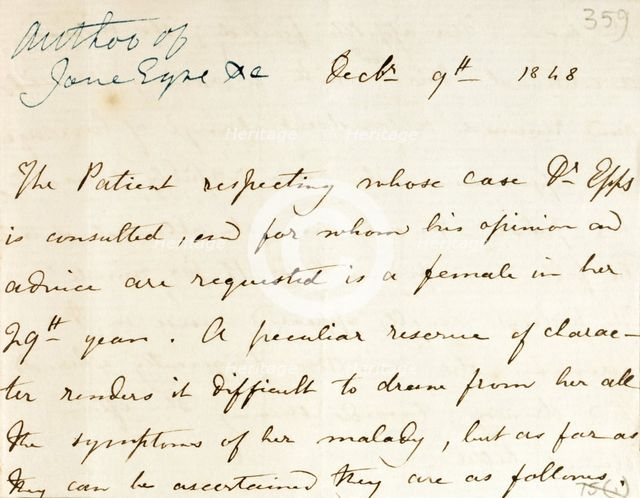 359
Author of
Jane Eyre &c
Decbr 9th 1848
The Patient respecting whose case Dr Epps
is consulted, and for whom his opinion and
advice are requested is a female in her
29th year. A peculiar reserve of charac-
ter renders it difficult to draw from her all
the symptoms of her malady, but as far as
they can be ascertained they are as follows.